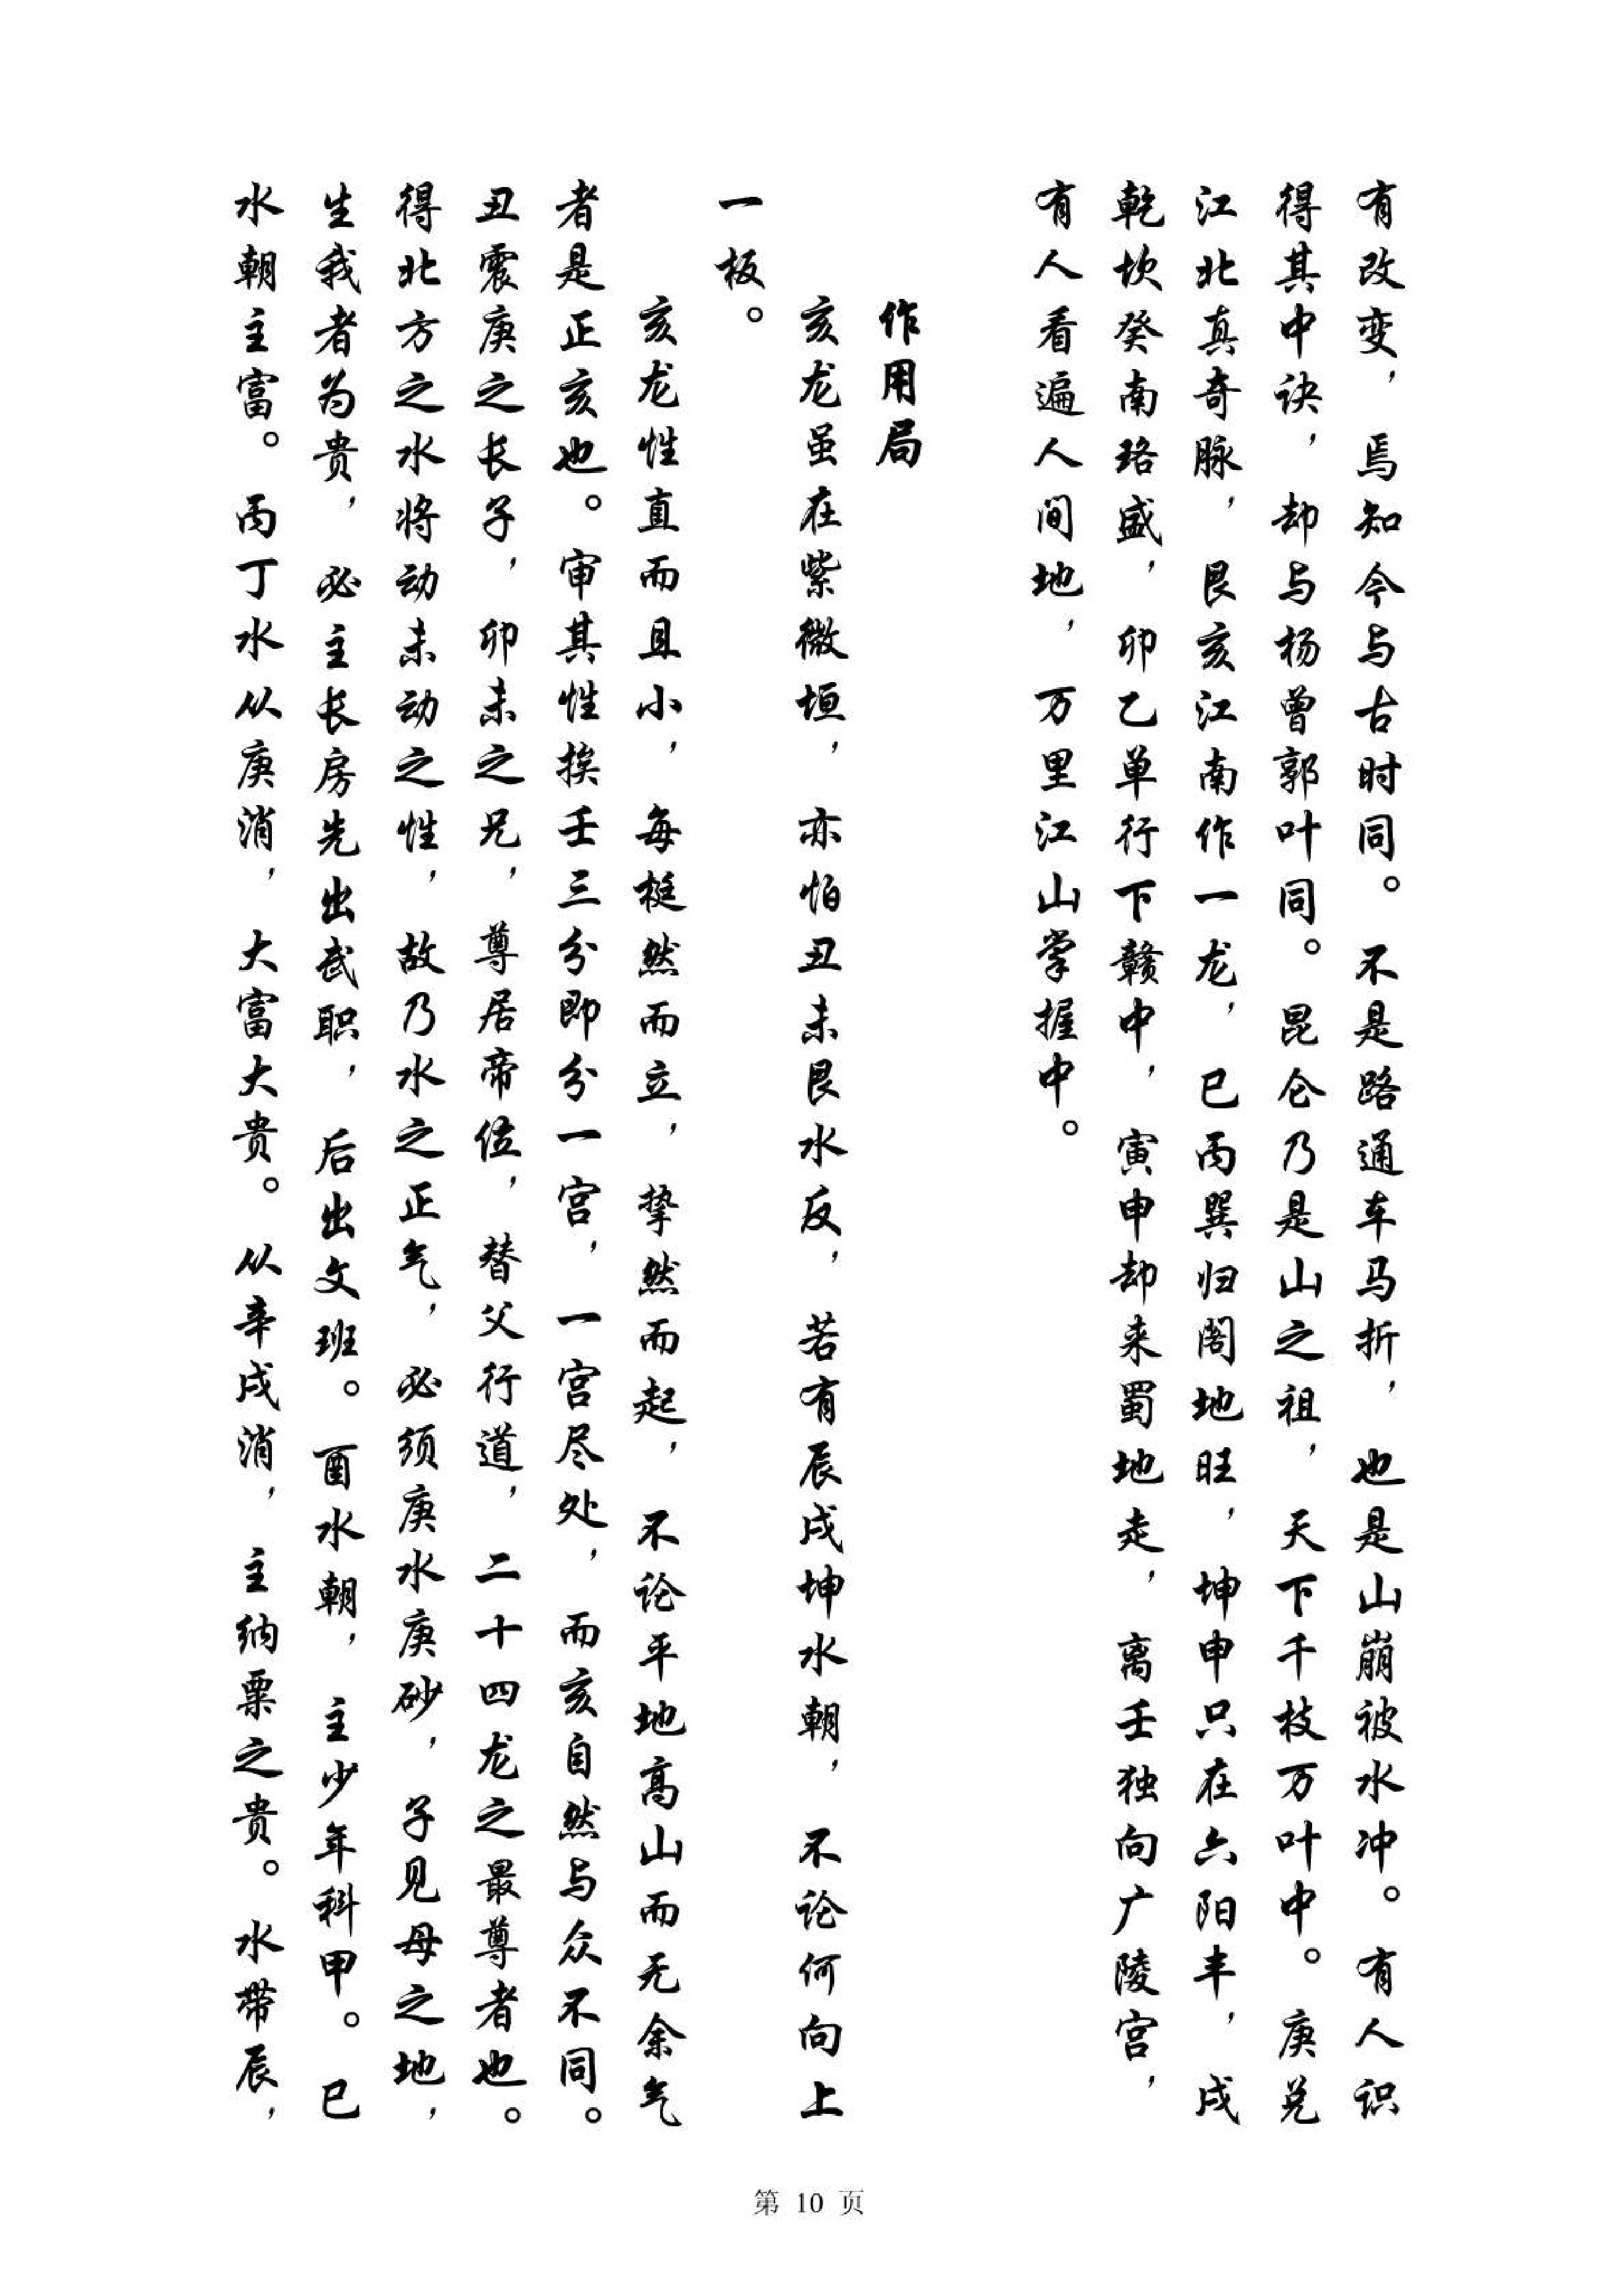 有改变，焉知今与古时同。不是路通车马折，也是山崩被水冲。有人识
得其中诀，却与杨曾郭叶同。昆仑乃是山之祖，天下千枝万叶中。庚兑
江北真奇脉，艮亥江南作一龙，巳丙巽归阁地旺，坤申只在六阳丰，戌
乾坎癸南珞盛，卯乙单行下赣中，寅申却来蜀地走，离壬独向广陵宫，
有人看遍人间地，万里江山掌握中。
作用局
亥龙虽在紫微垣，亦怕丑未艮水反，若有辰戌坤水朝，不论何向上
一板。
亥龙性直而且小，每梃然而立，挚然而起，不论平地高山而无余气
者是正亥也。审其性挨壬三分即分一宫，一宫尽处，而亥自然与众不同。
丑震庚之长子，卯未之兄，尊居帝位，替父行道，二十四龙之最尊者也。
得北方之水将动未动之性，故乃水之正气，必须庚水庚砂，子见母之地，
生我者为贵，必主长房先出武职，后出文班。酉水朝，主少年科甲。巳
水朝主富。丙丁水从庚消，大富大贵。从辛戌消，主纳粟之贵。水带辰，
第 10 页